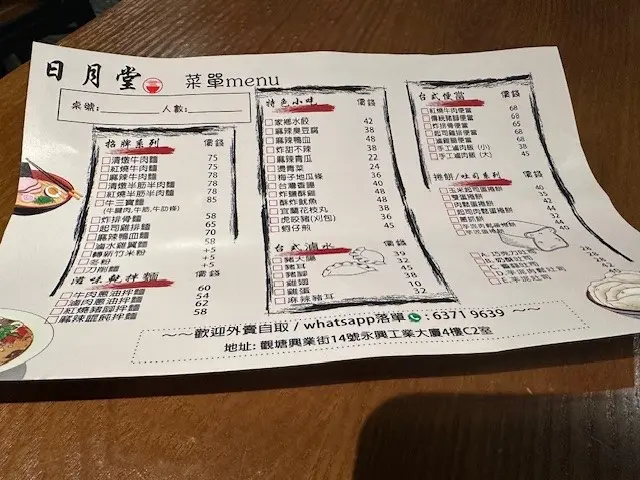 日月堂
菜單menu
桌號:
人數:
招牌系列 價錢
清燉牛肉麵 75
紅燒牛肉麵 75
麻辣牛肉麵 78
清燉半筋半肉麵 78
紅燒半筋半肉麵 78
牛三寶麵 85
(牛腱肉,牛筋,牛肋條)
炸排骨麵 65
起司雞排麵 65
麻辣鴨血麵 70
滷水雞翼麵 58
轉新竹米粉 +5
冬粉 +5
刀削麵 +5
滷味乾拌麵 價錢
牛肉蔥油拌麵 60
滷肉蔥油拌麵 54
紅燒豬腳拌麵 62
麻辣餛飩拌麵 58
特色小味 價錢
家鄉水餃 42
麻辣臭豆腐 38
麻辣鴨血 48
炸甜不辣 38
麻辣青瓜 22
燙青菜 24
梅子地瓜條 36
台灣香腸 40
炸鹽酥雞 48
酥炸魷魚 48
宜蘭花枝丸 38
虎咬豬(刈包) 36
蚵仔煎 45
台式滷水 價錢
豬大腸 39
豬耳 32
豬腳 45
雞翅 38
雞蛋 10
麻辣豬耳 32
台式便當 價錢
紅燒牛肉便當 68
傳統豬腳便當 68
炸排骨便當 65
起司雞排便當 68
滷雞腿便當 68
手工滷肉飯 (小) 38
手工滷肉飯 (大) 45
捲餅/吐司系列 價錢
玉米起司蛋捲餅 40
雙蛋捲餅 35
肉鬆蛋捲餅 42
起司肉鬆蛋捲餅 44
蔥抓餅
A: 巧克力吐司 28
～～歡迎外賣自取 / whatsapp落單 : 6371 9639 ～～
地址: 觀塘興業街14號永興工業大廈4樓C2室